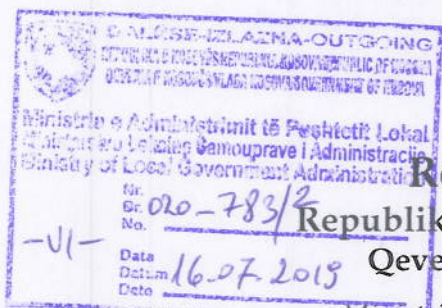 DALËSE-IZLAZNA-OUTGOING
Ministria e Administrimit të Pushtetit Lokal
Ministarstvo Lokalne Samouprave i Administracije
Ministry of Local Government Administration
Nr.
Br. 020-783/2
No.
Republik
-VI-
Qeve
Data
Datum 16.07.2019
Date